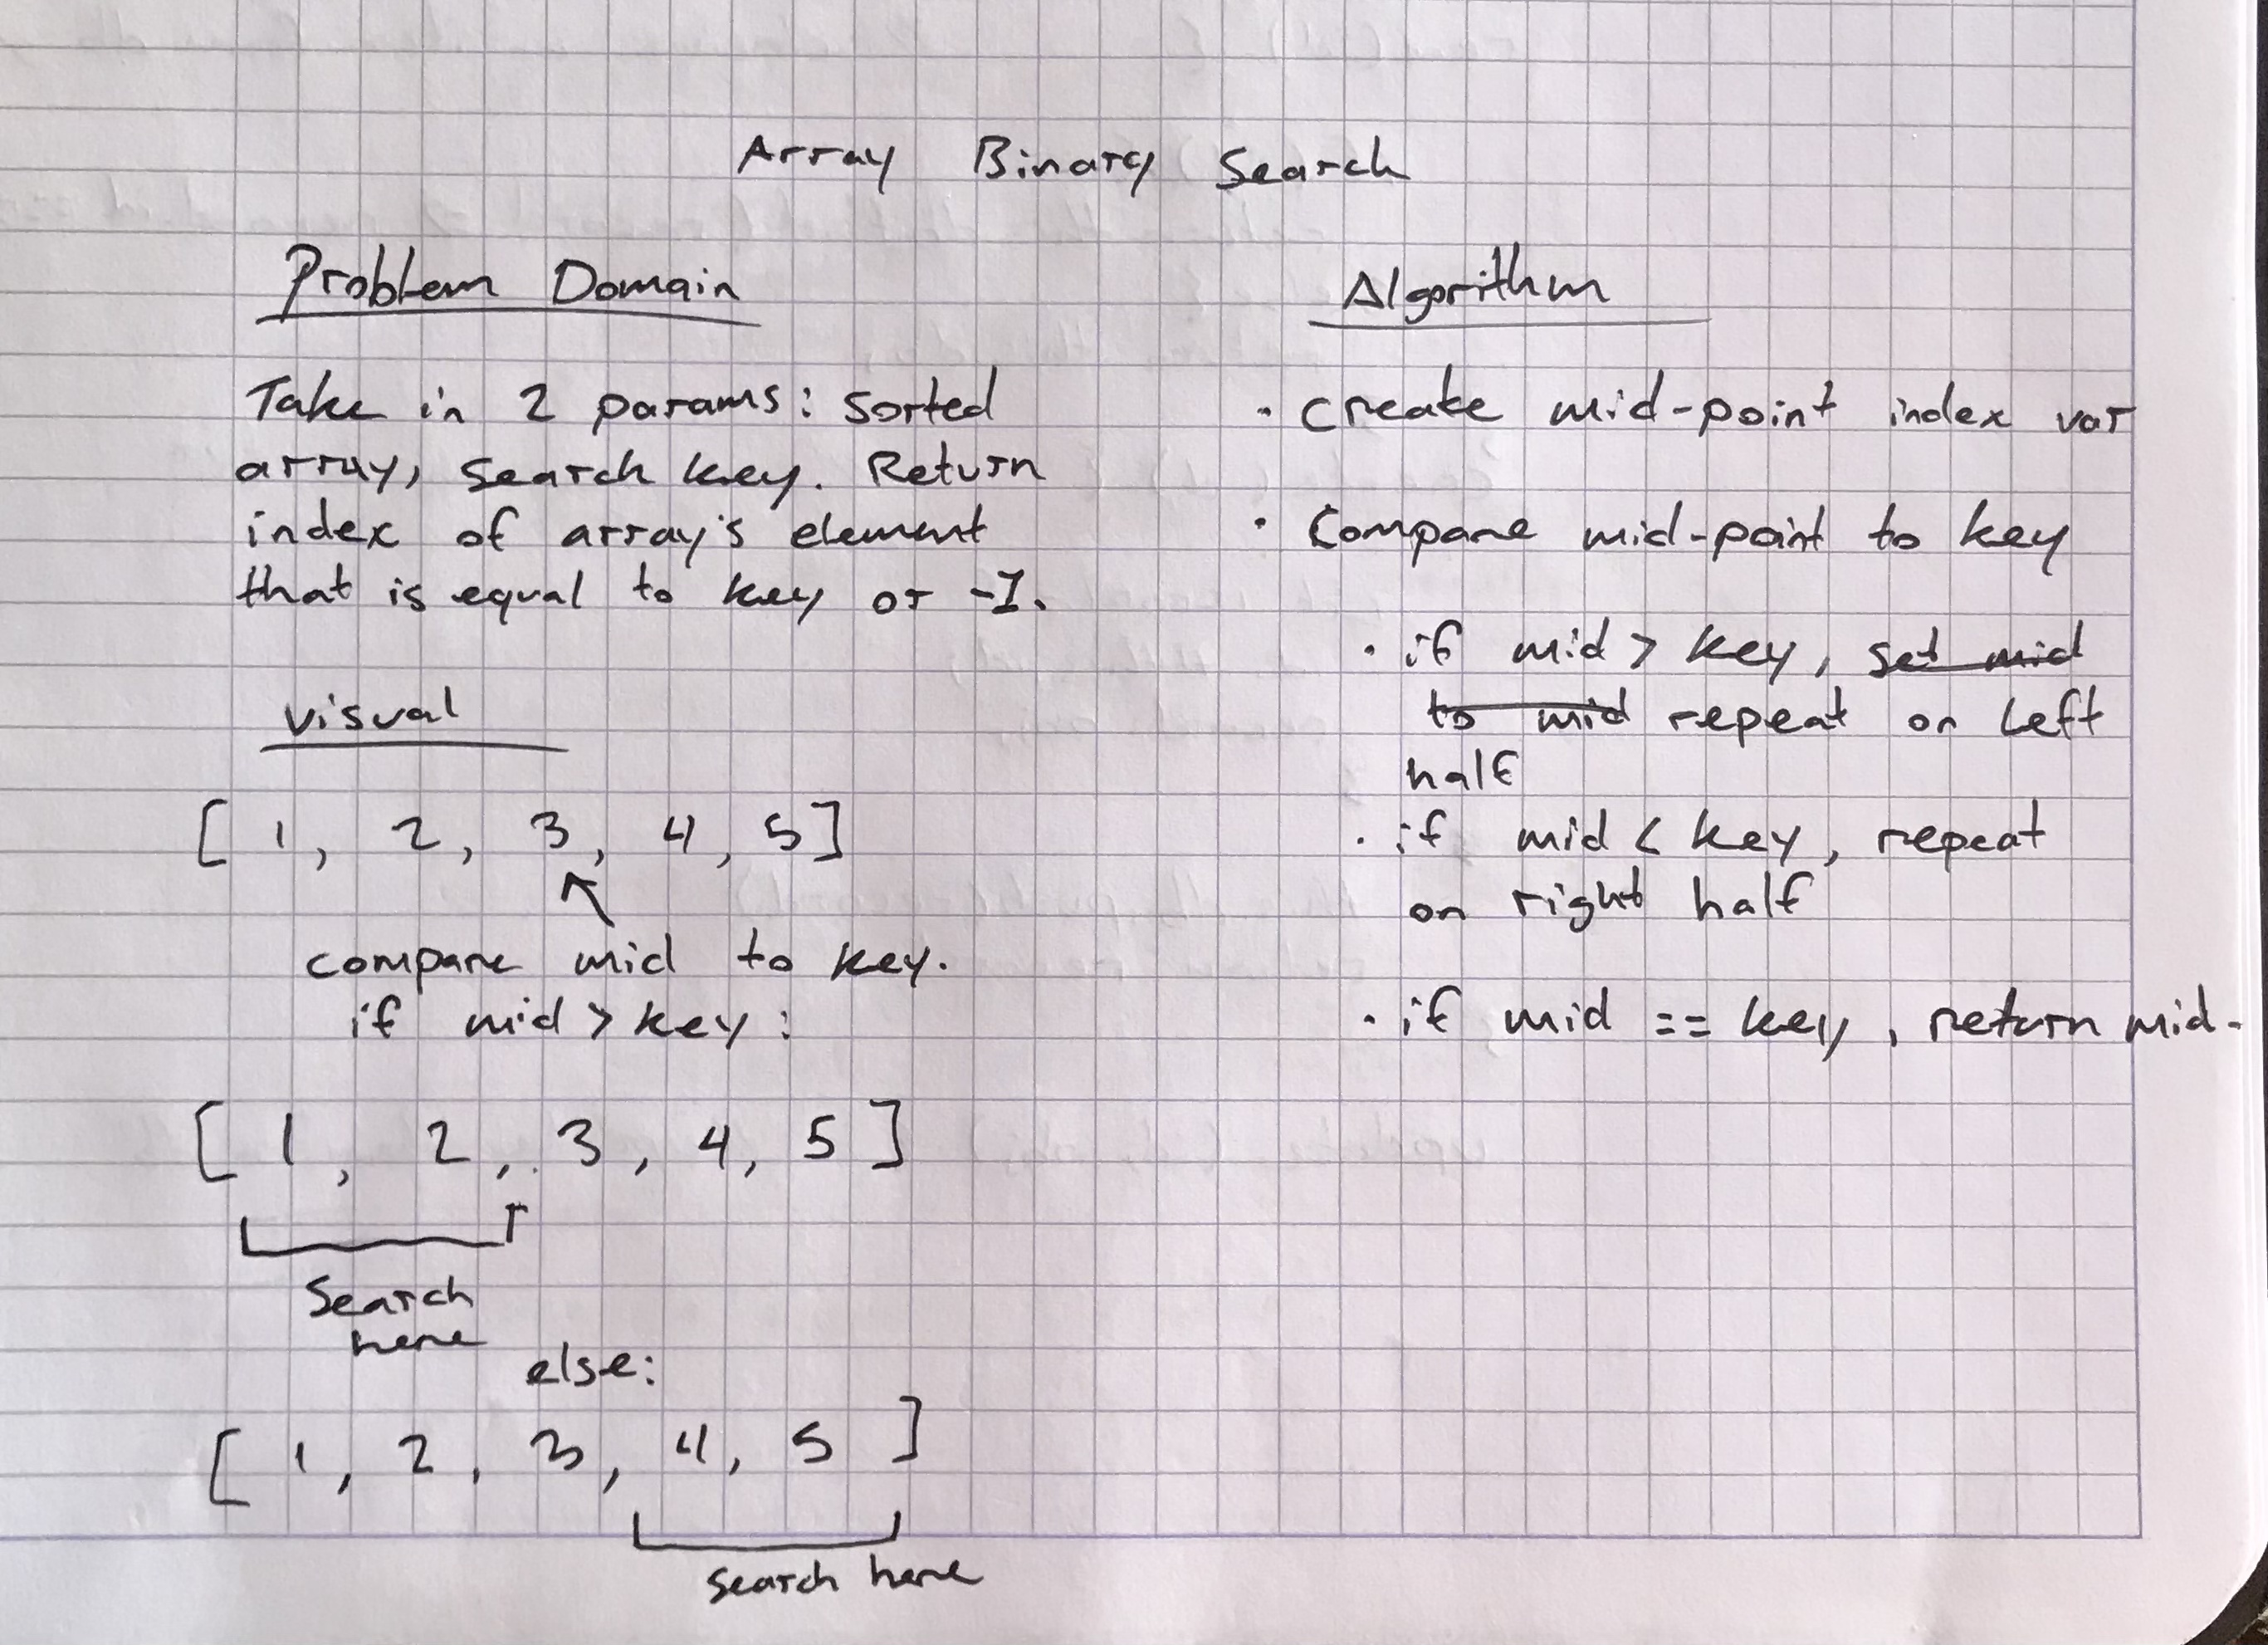 Array Binary Search
Problem Domain
Take in 2 params: sorted
array, search key. Return
index of array's element
that is equal to key or -1.
Visual
[ 1, 2, 3, 4, 5]
compare mid to key.
if mid > key:
[ 1, 2, 3, 4, 5 ]
Search
here
else:
[ 1, 2, 3, 4, 5 ]
search here
Algorithm
· create mid-point index var
· Compare mid-point to key
· if mid > key, set mid
to mid repeat on left
half
· if mid < key, repeat
on right half
· if mid == key, return mid.